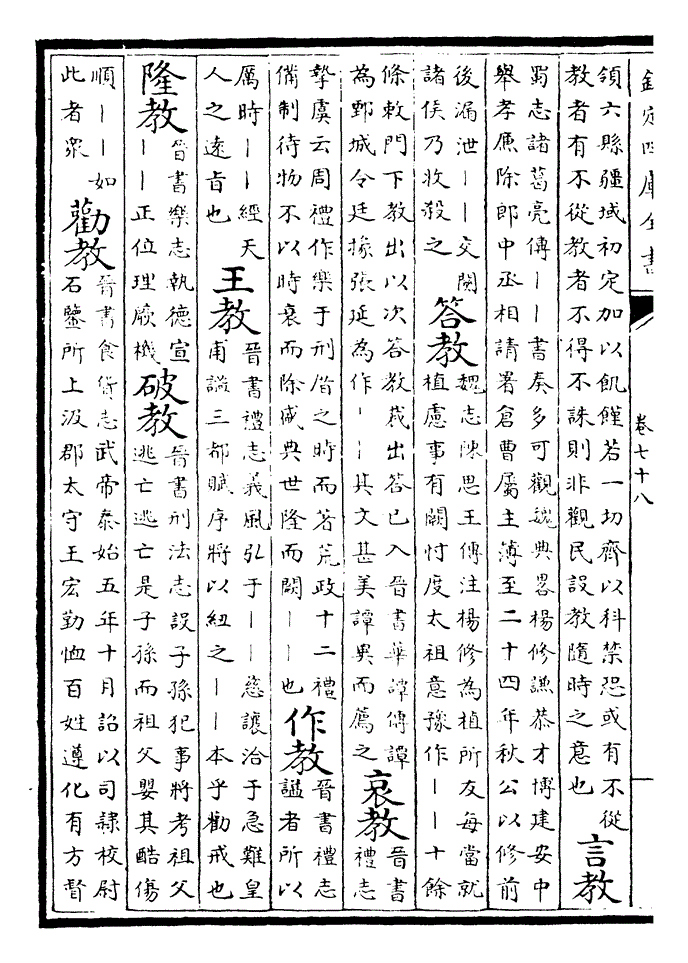 欽定四庫全書
卷七十八
領六縣疆域初定加以飢饉若一切齊以科禁恐或有不從
教者有不從教者不得不誅則非觀民設教隨時之意也
言教
蜀志諸葛亮傳丨丨書奏多可觀魏典畧楊修謙恭才博建安中
舉孝廉除郎中丞相請署倉曹屬主簿至二十四年秋公以修前
後漏泄丨丨交關
諸侯乃收殺之
答教
魏志陳思王傳注楊修為植所友每當就
植慮事有闕忖度太祖意豫作丨丨十餘
條敕門下教出以次答教裁出答已入晉書華譚傳譚
為鄄城令廷掾張延為作丨丨其文甚美譚異而薦之
哀教
晉書
禮志
摯虞云周禮作樂于刑厝之時而著荒政十二禮
備制待物不以時衰而除盛典世隆而闕丨丨也
作教
晉書禮志
諡者所以
厲時丨丨經天
人之遠旨也
王教
晉書禮志義風弘于丨丨慈讓洽于急難皇
甫謐三都賦序將以紐之丨丨本乎勸戒也
隆教
晉書樂志執德宣
丨丨正位理厥機
破教
晉書刑法志設子孫犯事將考祖父
逃亡逃亡是子孫而祖父嬰其酷傷
順丨丨如
此者衆
勸教
晉書食貨志武帝泰始五年十月詔以司隸校尉
石鑒所上汲郡太守王宏勤恤百姓遵化有方督